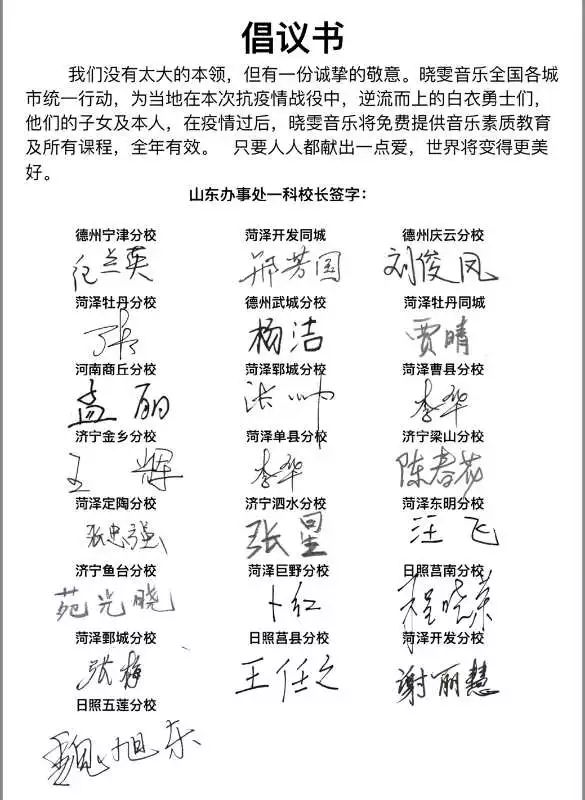 倡议书
我们没有太大的本领，但有一份诚挚的敬意。晓雯音乐全国各城
市统一行动，为当地在本次抗疫情战役中，逆流而上的白衣勇士们，
他们的子女及本人，在疫情过后，晓雯音乐将免费提供音乐素质教育
及所有课程，全年有效。 只要人人都献出一点爱，世界将变得更美
好。
山东办事处一科校长签字：
德州宁津分校 菏泽开发同城 德州庆云分校
兰英 郑芳国 刘俊凤
菏泽牡丹分校 德州武城分校 菏泽牡丹同城
杨洁 贾晴
河南商丘分校 菏泽郓城分校 菏泽曹县分校
孟丽 李华
济宁金乡分校 菏泽单县分校 济宁梁山分校
王辉 李华 陈春花
菏泽定陶分校 济宁泗水分校 菏泽东明分校
张忠强 张星 汪飞
济宁鱼台分校 菏泽巨野分校 日照莒南分校
苑光晓 卜红 程晓荣
菏泽鄄城分校 日照莒县分校 菏泽开发分校
张梅 王任之 谢丽慧
日照五莲分校
魏旭东